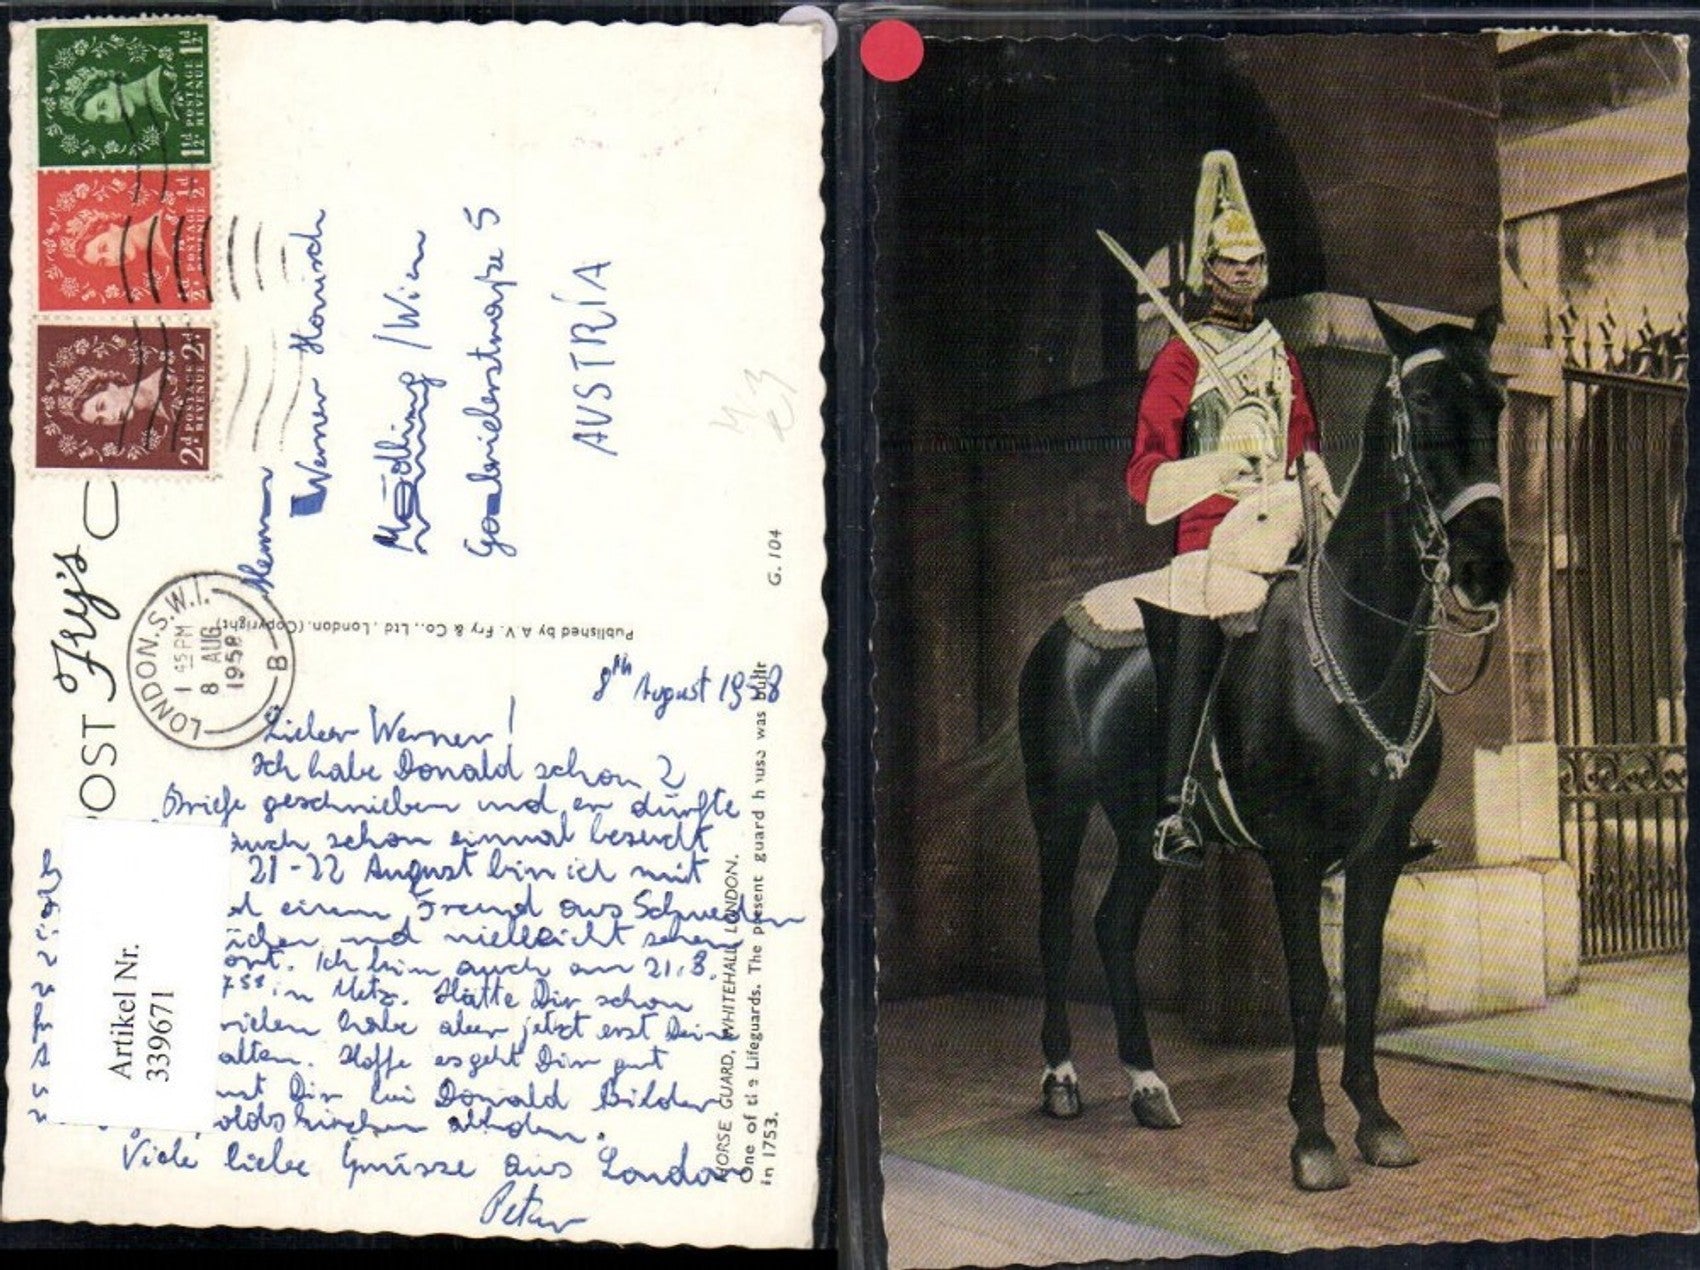 POST
Fry's
C
1½d POSTAGE REVENUE 1½d
½d POSTAGE REVENUE ½d
2d POSTAGE REVENUE 2d
LONDON.S.W.1.
1 45 PM
8 AUG
1958
B
Herrn
Werner Hornisch
Mödling / Wien
Gabrielerstraße 5
AUSTRIA
Published by A.V. Fry & Co., Ltd. London. (Copyright)
G. 104
8th August 1958
Lieber Werner!
Ich habe Donald schon 2
Briefe geschrieben und er dürfte
auch schon einmal besucht
21-22 August bin ich mit
einem Freund aus Schweden
und vielleicht sehen
ort. Ich bin auch am 21.8.
58 in Metz. Hätte Dir schon
habe aber jetzt erst Deine
alten. Hoffe es geht Dir gut
Dir bei Donald Bilder
oldskirchen abholen.
Viele liebe Grüsse aus London
Peter
HORSE GUARD, WHITEHALL, LONDON.
One of the Lifeguards. The present guard house was built
in 1753.
Artikel Nr.
339671